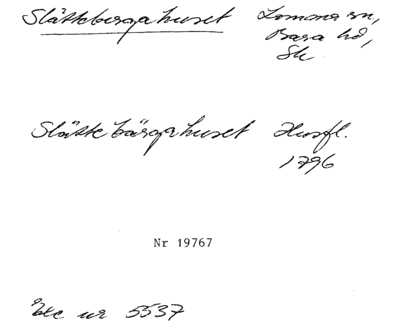 Slätteberga huset Lomma sn,
Bara hd,
Sk.
Slätte bärga huset Husfl.
1796
Nr 19767
Exc nr 5537